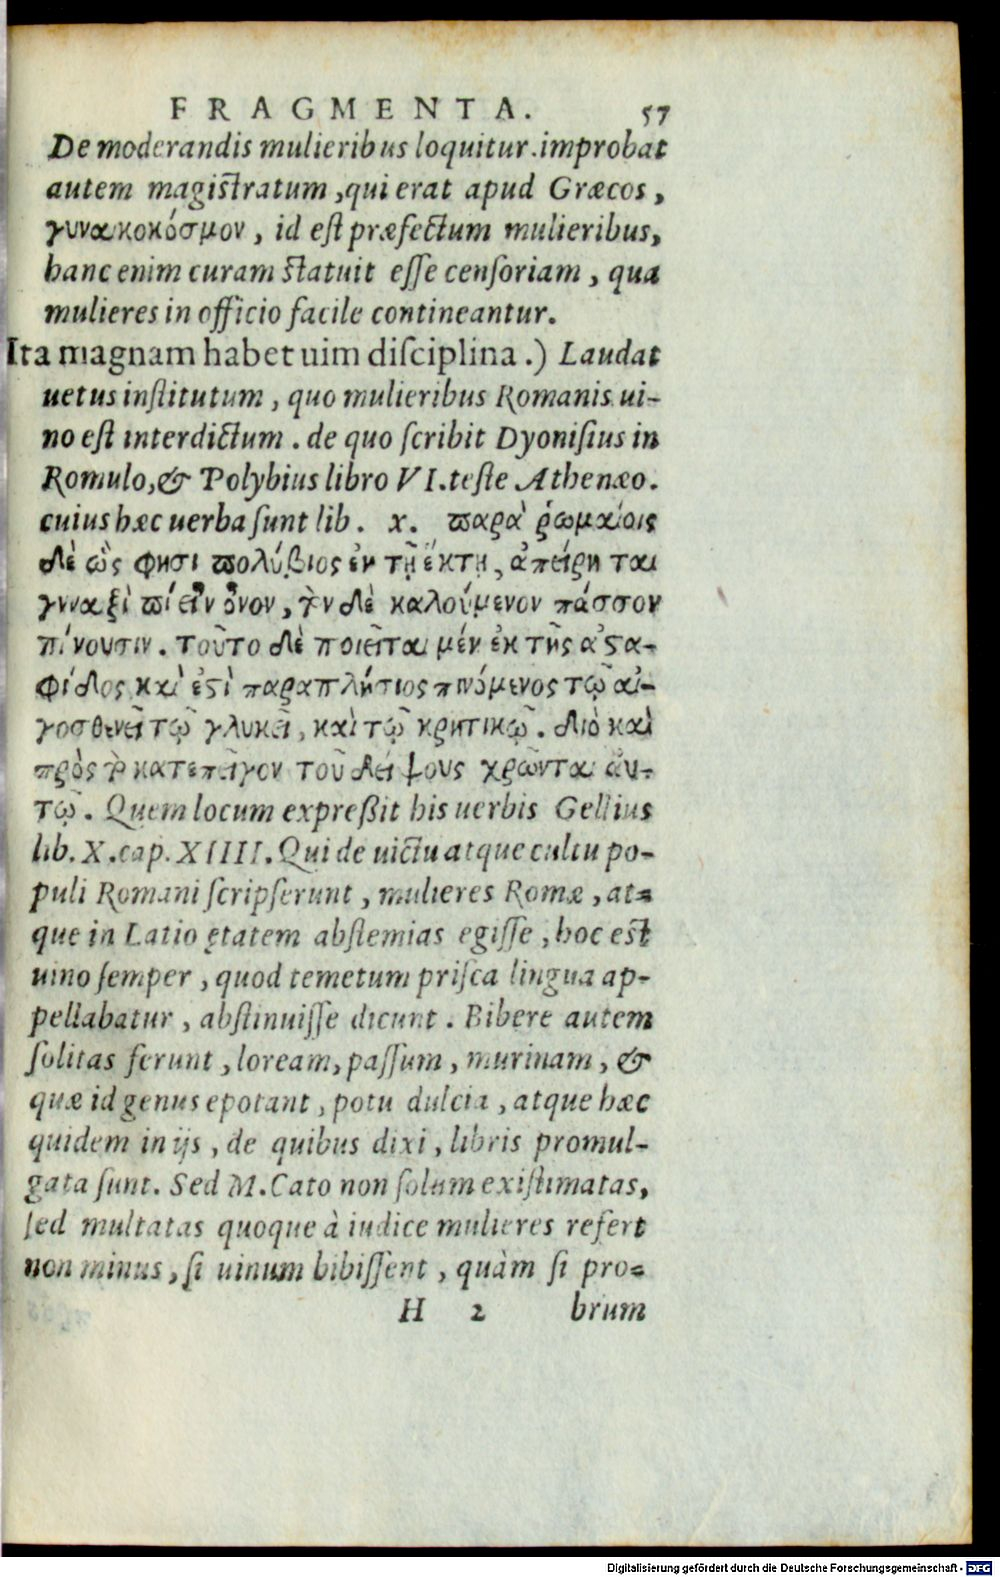 FRAGMENTA. 57
De moderandis mulieribus loquitur. improbat
autem magistratum, qui erat apud Græcos,
γυναικοκόσμον, id est præfectum mulieribus,
hanc enim curam statuit esse censoriam, qua
mulieres in officio facile contineantur.
Ita magnam habet uim disciplina.) Laudat
uetus institutum, quo mulieribus Romanis ui-
no est interdictum. de quo scribit Dyonisius in
Romulo, & Polybius libro VI. teste Athenæo.
cuius hæc uerba sunt lib. x. παρὰ ῥωμαίοις
δὲ ὥς φησι πολύβιος ἐν τῇ ἕκτῃ, ἀπείρηται
γυναιξὶ πίειν οἶνον, τὸν δὲ καλούμενον πάσσον
πίνουσιν. τοῦτο δὲ ποιεῖται μέν ἐκ τῆς ἀστα-
φίδος καὶ ἐστὶ παραπλήσιος πινόμενος τῷ αἰ-
γοσθενεῖ τῷ γλυκεῖ, καὶ τῷ κρητικῷ. διὸ καὶ
πρὸς τὸ κατεπεῖγον τοῦ δείψους χρῶνται αὐ-
τῷ. Quem locum expreßit his uerbis Gellius
lib. X. cap. XIIII. Qui de uictu atque cultu po-
puli Romani scripserunt, mulieres Romæ, at-
que in Latio ętatem abstemias egisse, hoc est
uino semper, quod temetum prisca lingua ap-
pellabatur, abstinuisse dicunt. Bibere autem
solitas ferunt, loream, passum, murinam, &
quæ id genus epotant, potu dulcia, atque hæc
quidem in ijs, de quibus dixi, libris promul-
gata sunt. Sed M. Cato non solum existimatas,
sed multatas quoque à iudice mulieres refert
non minus, si uinum bibissent, quàm si pro-
H 2 brum
Digitalisierung gefördert durch die Deutsche Forschungsgemeinschaft - DFG